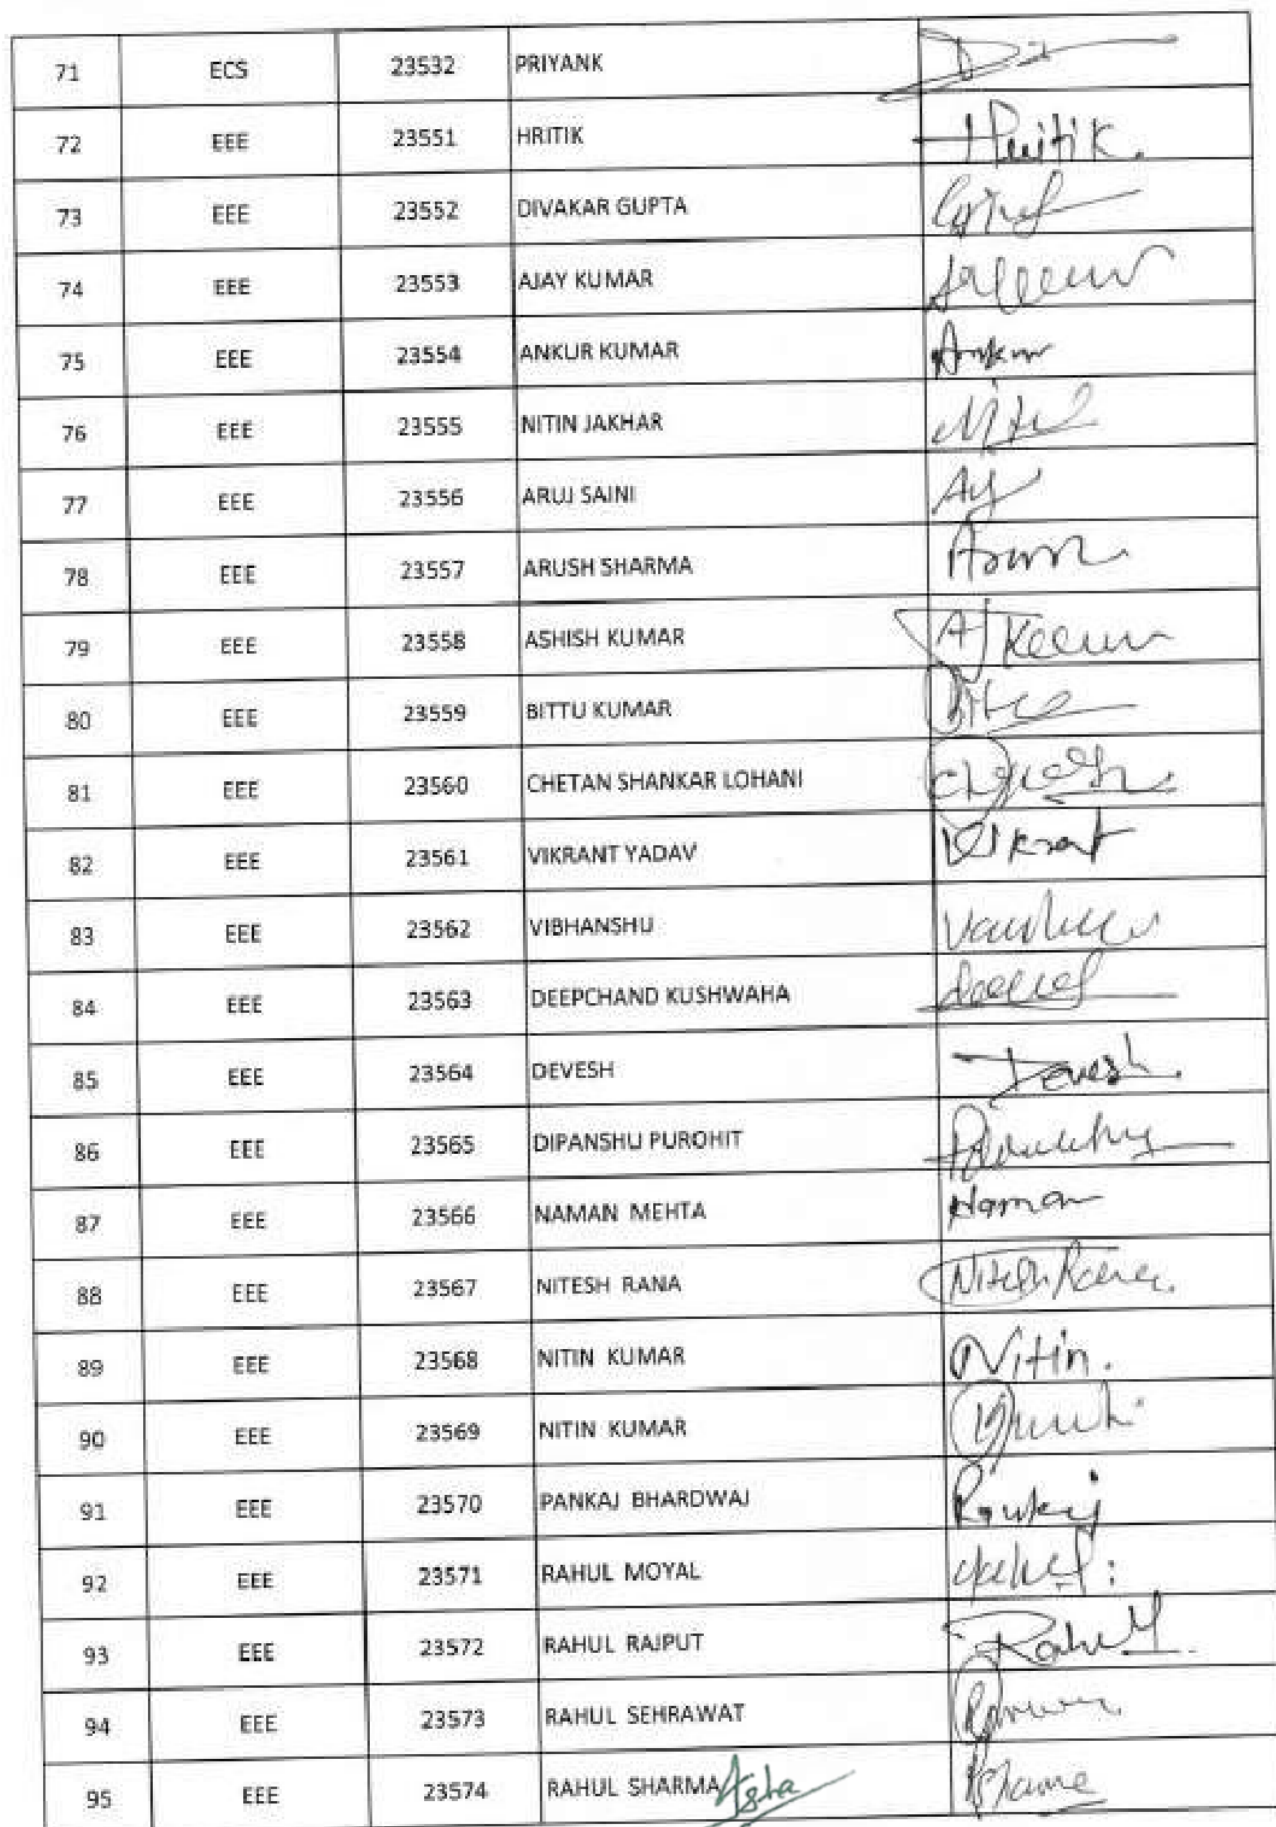 71 ECS 23532 PRIYANK
72 EEE 23551 HRITIK Hritik.
73 EEE 23552 DIVAKAR GUPTA
74 EEE 23553 AJAY KUMAR
75 EEE 23554 ANKUR KUMAR Ankur
76 EEE 23555 NITIN JAKHAR
77 EEE 23556 ARUJ SAINI
78 EEE 23557 ARUSH SHARMA
79 EEE 23558 ASHISH KUMAR
80 EEE 23559 BITTU KUMAR
81 EEE 23560 CHETAN SHANKAR LOHANI
82 EEE 23561 VIKRANT YADAV Vikrant
83 EEE 23562 VIBHANSHU
84 EEE 23563 DEEPCHAND KUSHWAHA
85 EEE 23564 DEVESH Devesh.
86 EEE 23565 DIPANSHU PUROHIT
87 EEE 23566 NAMAN MEHTA Naman
88 EEE 23567 NITESH RANA Nitesh Rana.
89 EEE 23568 NITIN KUMAR Nitin.
90 EEE 23569 NITIN KUMAR
91 EEE 23570 PANKAJ BHARDWAJ Pankaj
92 EEE 23571 RAHUL MOYAL
93 EEE 23572 RAHUL RAJPUT Rahul
94 EEE 23573 RAHUL SEHRAWAT
95 EEE 23574 RAHUL SHARMA Asha